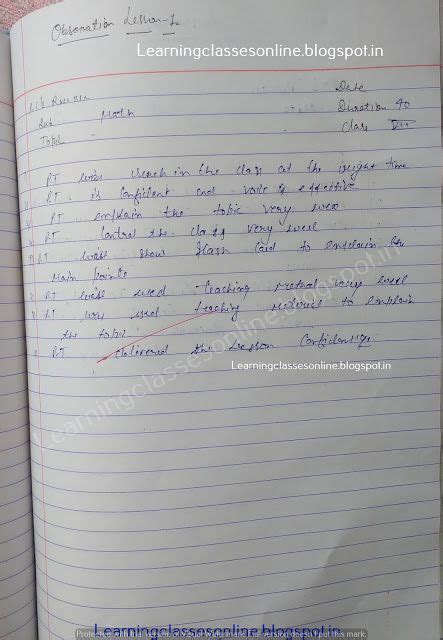 Obsonation Lesson-1
Learningclassesonline.blogspot.in
Date
Duration 40
Sub Math
Class VII
Topic
PT was in the class at the right time
PT is confident and voice is effective
PT explain the topic very well
PT Control the class very well
PT was show flash card to explain the
main points
PT was used Teaching method very well
PT was used teaching material to explain
the topic
PT the Lesson
Learningclassesonline.blogspot.in
Learningclassesonline.blogspot.in
Learningclassesonline.blogspot.in